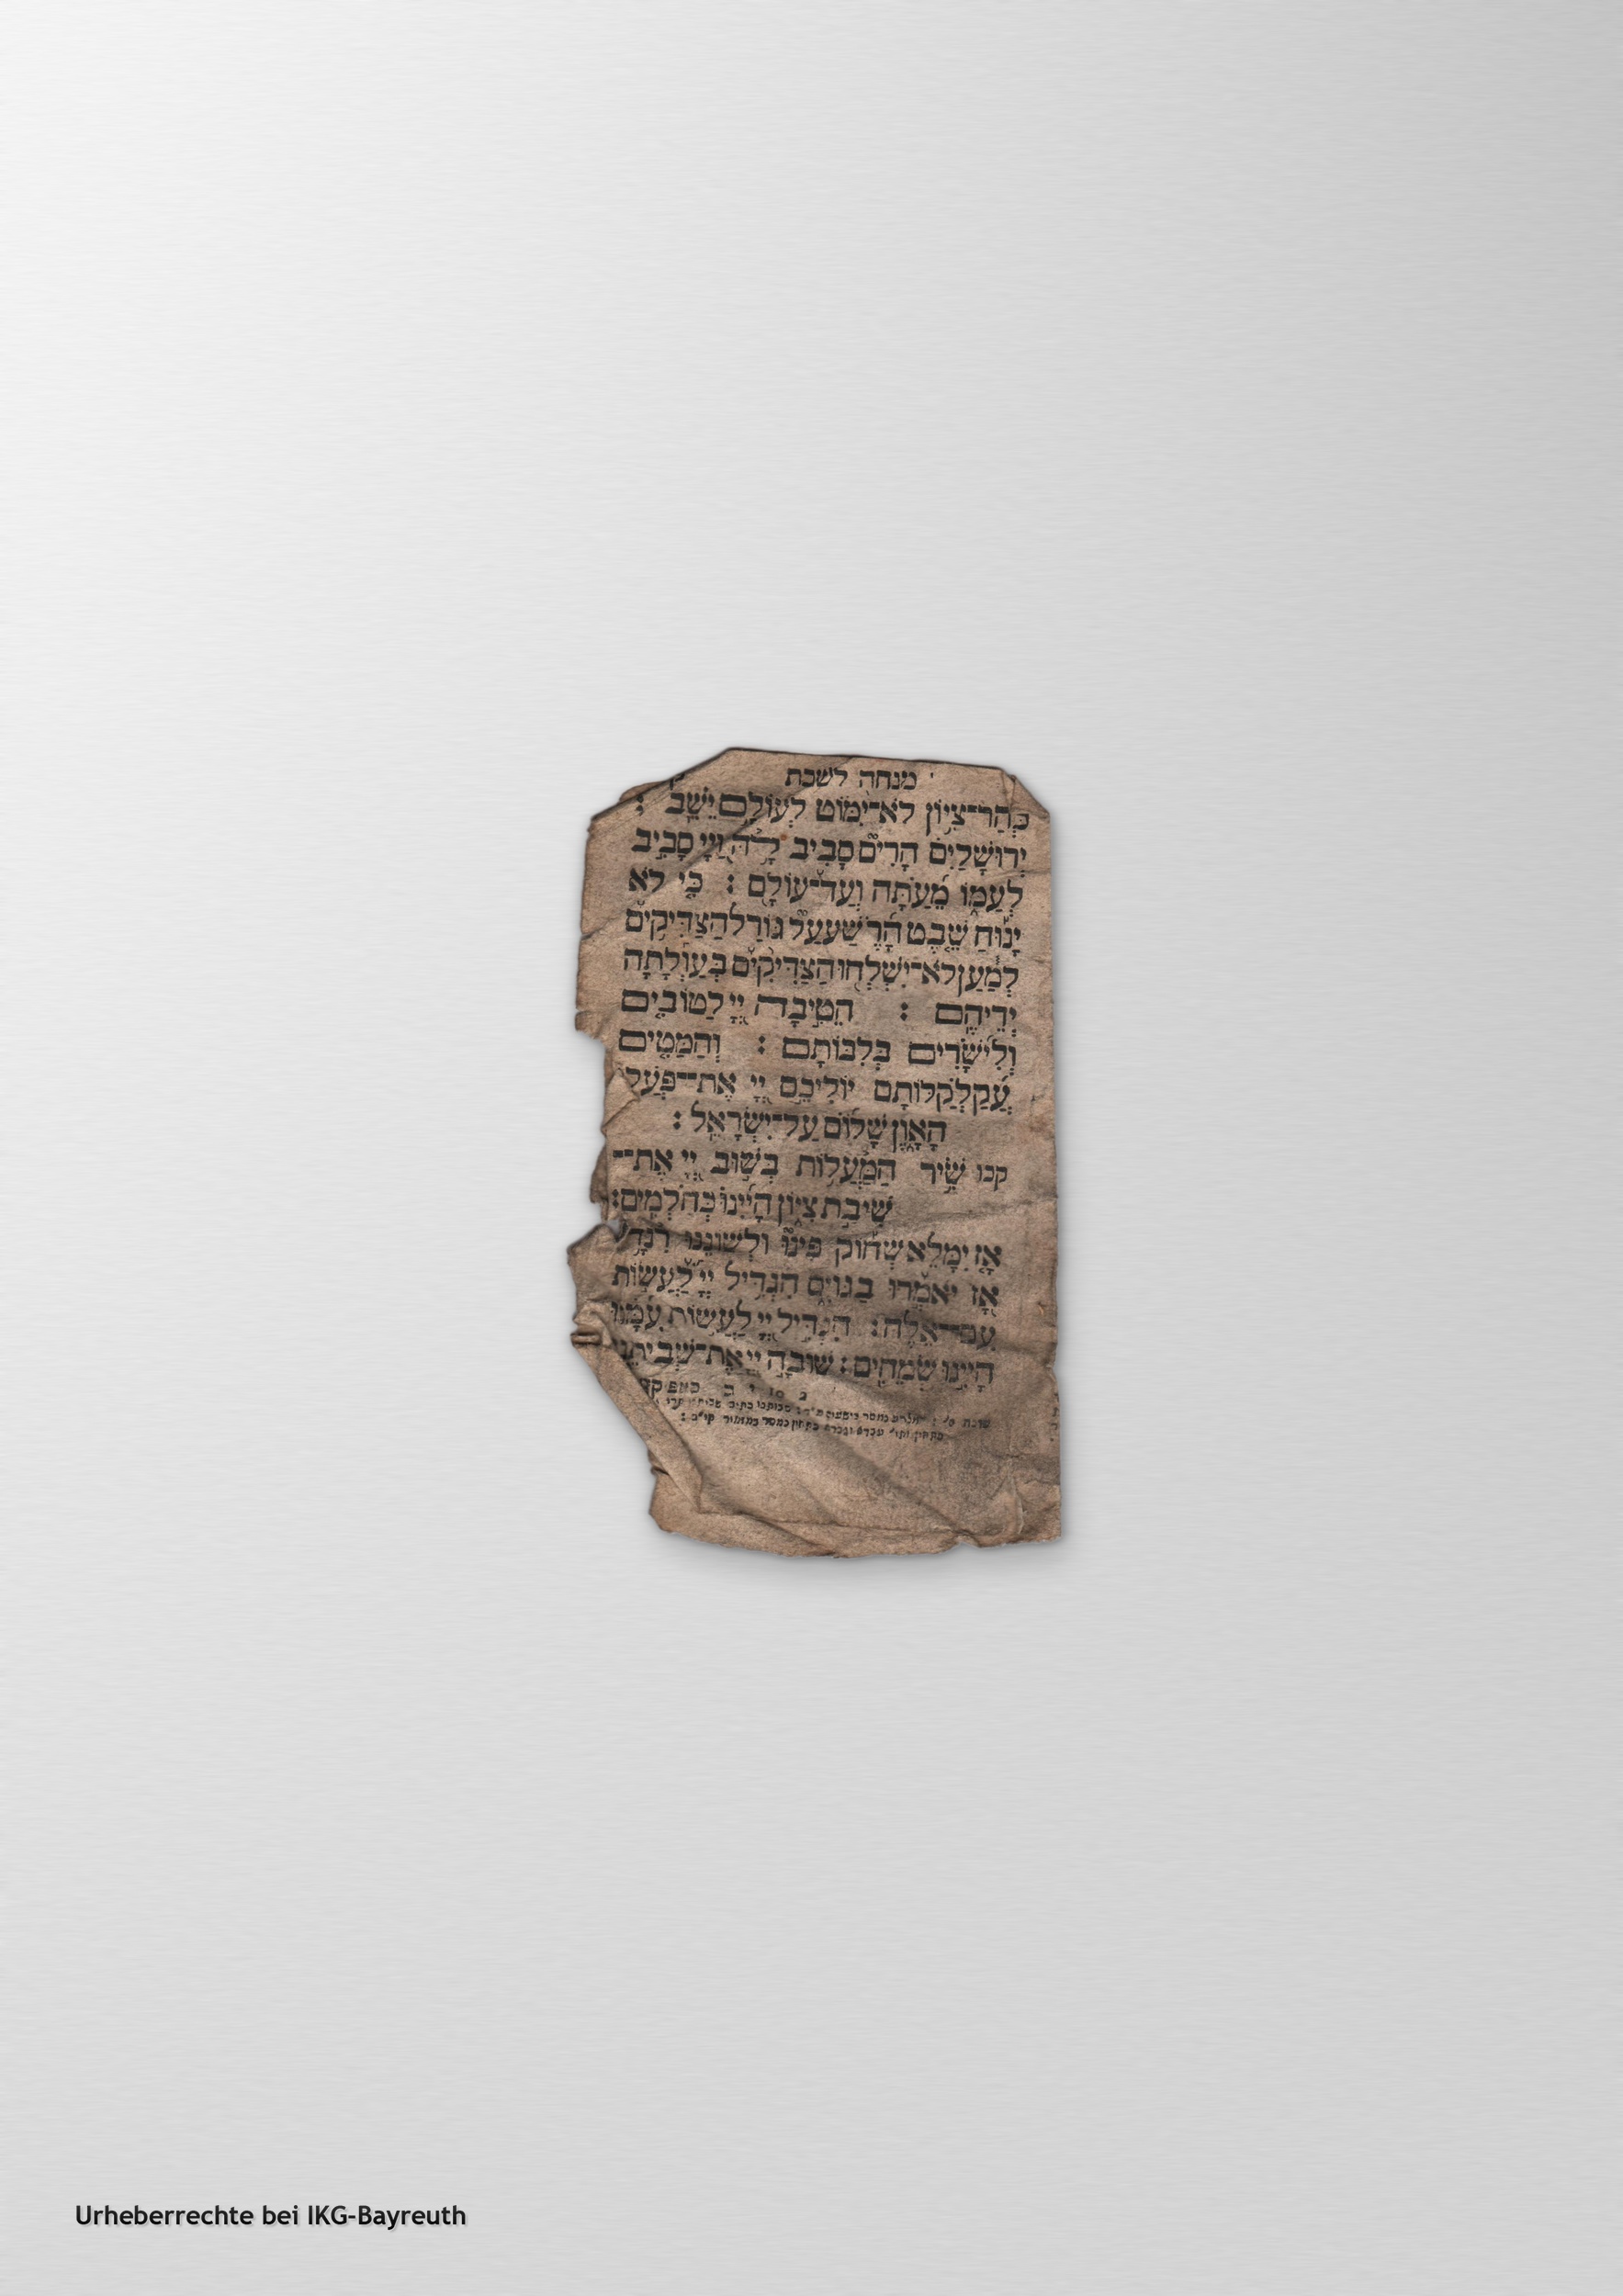 מנחה לשבת
כְּהַר־צִיּוֹן לֹא־יִמּוֹט לְעוֹלָם יֵשֵׁב :
יְרוּשָׁלַיִם הָרִים סָבִיב לָהּ וַיְיָ סָבִיב
לְעַמּוֹ מֵעַתָּה וְעַד־עוֹלָם : כִּי לֹא
יָנוּחַ שֵׁבֶט הָרֶשַׁע עַל גּוֹרַל הַצַּדִּיקִים
לְמַעַן לֹא־יִשְׁלְחוּ הַצַּדִּיקִים בְּעַוְלָתָה
יְדֵיהֶם : הֵטִיבָה יְיָ לַטּוֹבִים
וְלִישָׁרִים בְּלִבּוֹתָם : וְהַמַּטִּים
עֲקַלְקַלּוֹתָם יוֹלִיכֵם יְיָ אֶת־פֹּעֲלֵי
הָאָוֶן שָׁלוֹם עַל־יִשְׂרָאֵל :
קכו שִׁיר הַמַּעֲלוֹת בְּשׁוּב יְיָ אֶת־
שִׁיבַת צִיּוֹן הָיִינוּ כְּחֹלְמִים :
אָז יִמָּלֵא שְׂחוֹק פִּינוּ וּלְשׁוֹנֵנוּ רִנָּה
אָז יֹאמְרוּ בַגּוֹיִם הִגְדִּיל יְיָ לַעֲשׂוֹת
עִם־אֵלֶּה : הִגְדִּיל יְיָ לַעֲשׂוֹת עִמָּנוּ
הָיִינוּ שְׂמֵחִים : שׁוּבָה יְיָ אֶת־שְׁבִיתֵנוּ
Urheberrechte bei IKG-Bayreuth